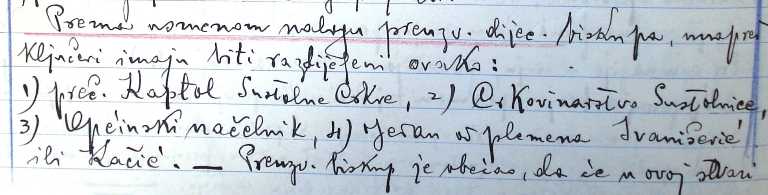 Prema usmenom nalogu preuzv. dijec. biskupa, unapred
ključeri imaju biti razdijeljeni ovako:
1) preč. Kaptol Sustolne Crkve, 2) Crkovinarstvo Sustolnice,
3) Općinski načelnik, 4) Jedan od plemena Ivanišević
ili Kačić. — Preuzv. biskup je obećao, da će u ovoj stvari